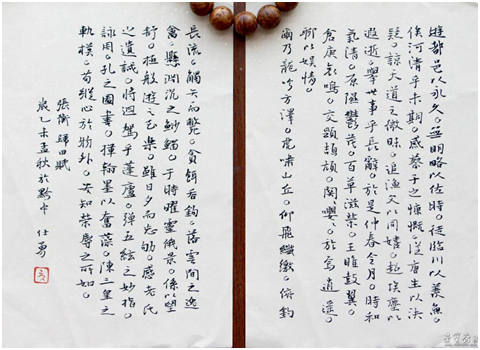 遊都邑以永久。無明略以佐時。徒臨川以羨魚。
俟河清乎未期。感蔡子之慷慨。從唐生以決
疑。諒天道之微昧。追漁父以同嬉。超埃塵以
遐逝。與世事乎長辭。於是仲春令月。時和
氣清。原隰鬱茂。百草滋榮。王雎鼓翼。
倉庚哀鳴。交頸頡頏。関〻嚶〻。於焉逍遥。
聊以娛情。
爾乃龍吟方澤。虎嘯山丘。仰飛纖繳。俯釣
長流。觸矢而斃。貪餌吞鈎。落雲間之逸
禽。懸淵沉之魦鰡。于時曜靈俄景。係以望
舒。極般遊之至樂。雖日夕而忘劬。感老氏
之遺誡。將迴駕乎蓬廬。彈五絃之妙指。
詠周。孔之圖書。揮翰墨以奮藻。陳三皇之
軌模。苟縱心於物外。安知榮辱之所如。
張衡歸田賦
歲乙未孟秋於黔中 任勇